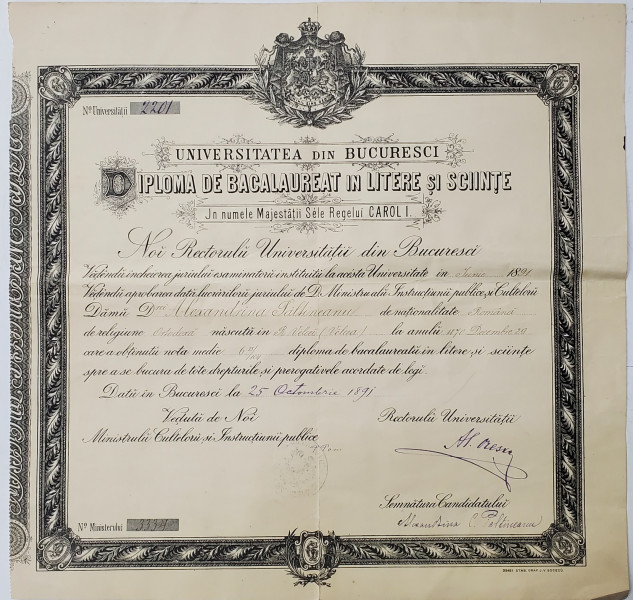 No Universității 2201
UNIVERSITATEA DIN BUCURESCI
DIPLOMA DE BACALAUREAT IN LITERE ȘI SCIINȚE
In numele Majestății Séle Regelui CAROL I.
Noi Rectorulŭ Universitățiĭ din Bucurescĭ
Vĕdĕndŭ incheiarea juriuluĭ examinatorŭ instituitŭ la acésta Universitate in Juniŭ 1891
Vĕdĕndŭ aprobarea dată lucrărilorŭ juriuluĭ de D. Ministru alŭ Instrucțiuniĭ publice și Cultelorŭ
Dămŭ D Alexandrina Paltineanu de naționalitate Română
de religiune Ortodoxă născută in R. Vâlcĭ (Vâlcea) la anulŭ 1870 Decembrie
care a obținutŭ nota medie 6 diploma de bacalaureatŭ in litere și sciințe
spre a se bucura de tóte drepturile și prerogativele acordate de legĭ.
Datŭ in Bucurescĭ la 25 Octombrie 1891
Vĕdutŭ de Noĭ
Ministrulŭ Cultelorŭ și Instrucțiuniĭ publice
Rectorulŭ Universitățiĭ
Al. Orescu
Semnătura Candidatuluĭ
Alexandrina C. Paltineanu
No Ministeruluĭ 3334